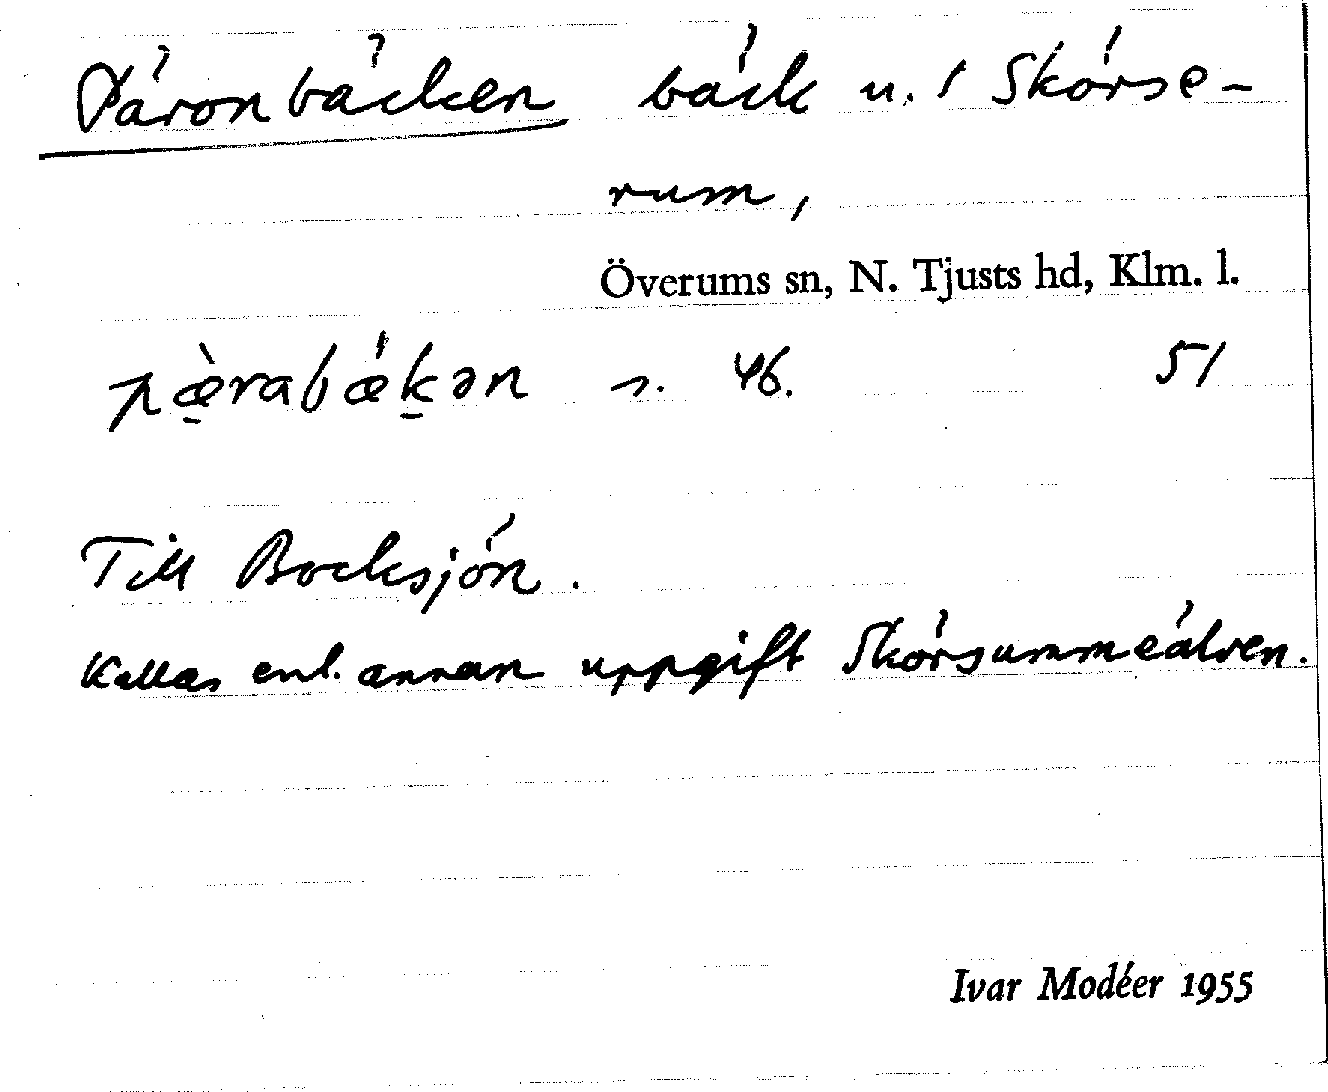 Päronbäcken bäck u. / Skörse-
rum,
Överums sn, N. Tjusts hd, Klm. l.
pæ̠̀rabǽk̠ən s. 46. 51
Till Bocksjön.
Kallas enl. annan uppgift Skörsummeälven.
Ivar Modéer 1955